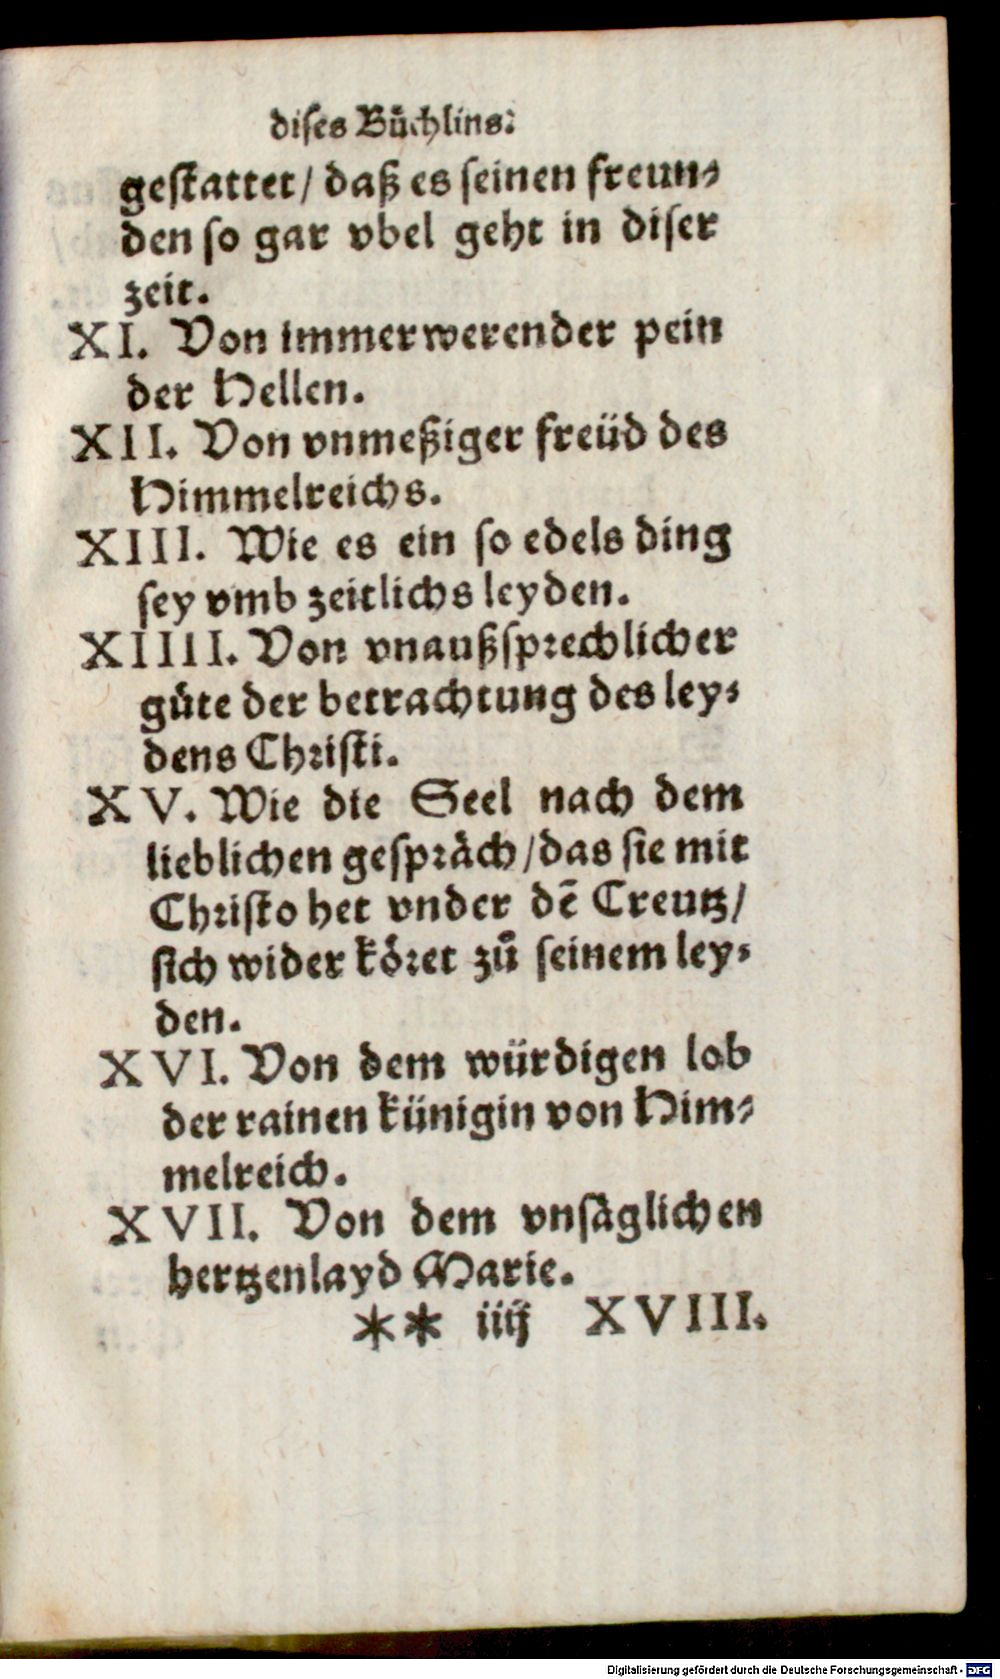 dises Bůchlins:
gestattet / daß es seinen freun⸗
den so gar vbel geht in diser
zeit.
XI. Von immerwerender pein
der Hellen.
XII. Von vnmeßiger freüd des
Himmelreichs.
XIII. Wie es ein so edels ding
sey vmb zeitlichs leyden.
XIIII. Von vnaußsprechlicher
güte der betrachtung des ley⸗
dens Christi.
XV. Wie die Seel nach dem
lieblichen gespräch / das sie mit
Christo het vnder dē Creutz /
sich wider köret zů seinem ley⸗
den.
XVI. Von dem würdigen lob
der rainen künigin von Him⸗
melreich.
XVII. Von dem vnsäglichen
hertzenlayd Marie.
** iiij XVIII.
Digitalisierung gefördert durch die Deutsche Forschungsgemeinschaft - DFG